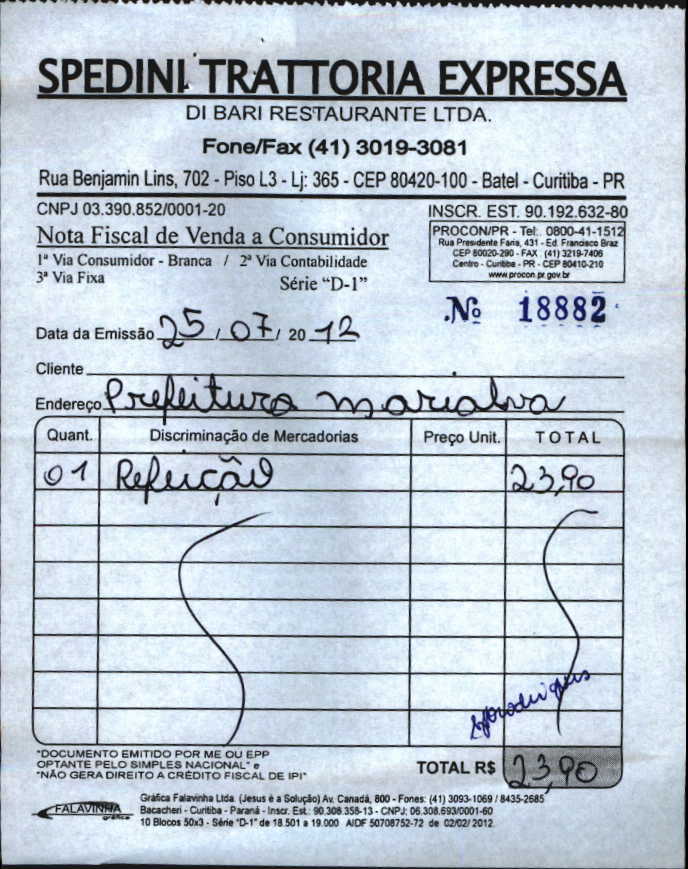 SPEDINI TRATTORIA EXPRESSA
DI BARI RESTAURANTE LTDA.
Fone/Fax (41) 3019-3081
Rua Benjamin Lins, 702 - Piso L3 - Lj: 365 - CEP 80420-100 - Batel - Curitiba - PR
CNPJ 03.390.852/0001-20
INSCR. EST. 90.192.632-80
Nota Fiscal de Venda a Consumidor
1ª Via Consumidor - Branca / 2ª Via Contabilidade
3ª Via Fixa
Série "D-1"
PROCON/PR - Tel:. 0800-41-1512
Rua Presidente Faria, 431 - Ed. Francisco Braz
CEP 80020-290 - FAX . (41) 3219-7406
Centro - Curitiba - PR - CEP 80410-210
www.procon.pr.gov.br
Nº 18882
Data da Emissão 25 / 07 / 20 12
Cliente
Endereço Prefeitura marialva
Quant. Discriminação de Mercadorias Preço Unit. TOTAL
01 Refeição 23,90
"DOCUMENTO EMITIDO POR ME OU EPP
OPTANTE PELO SIMPLES NACIONAL" e
"NÃO GERA DIREITO A CRÉDITO FISCAL DE IPI"
TOTAL R$ 23,90
FALAVINHA
gráfica
Gráfica Falavinha Ltda. (Jesus é a Solução) Av. Canadá, 800 - Fones: (41) 3093-1069 / 8435-2685
Bacacheri - Curitiba - Paraná - Inscr. Est.: 90.308.358-13 - CNPJ: 06.308.693/0001-60
10 Blocos 50x3 - Série "D-1" de 18.501 a 19.000 AIDF 50708752-72 de 02/02/ 2012